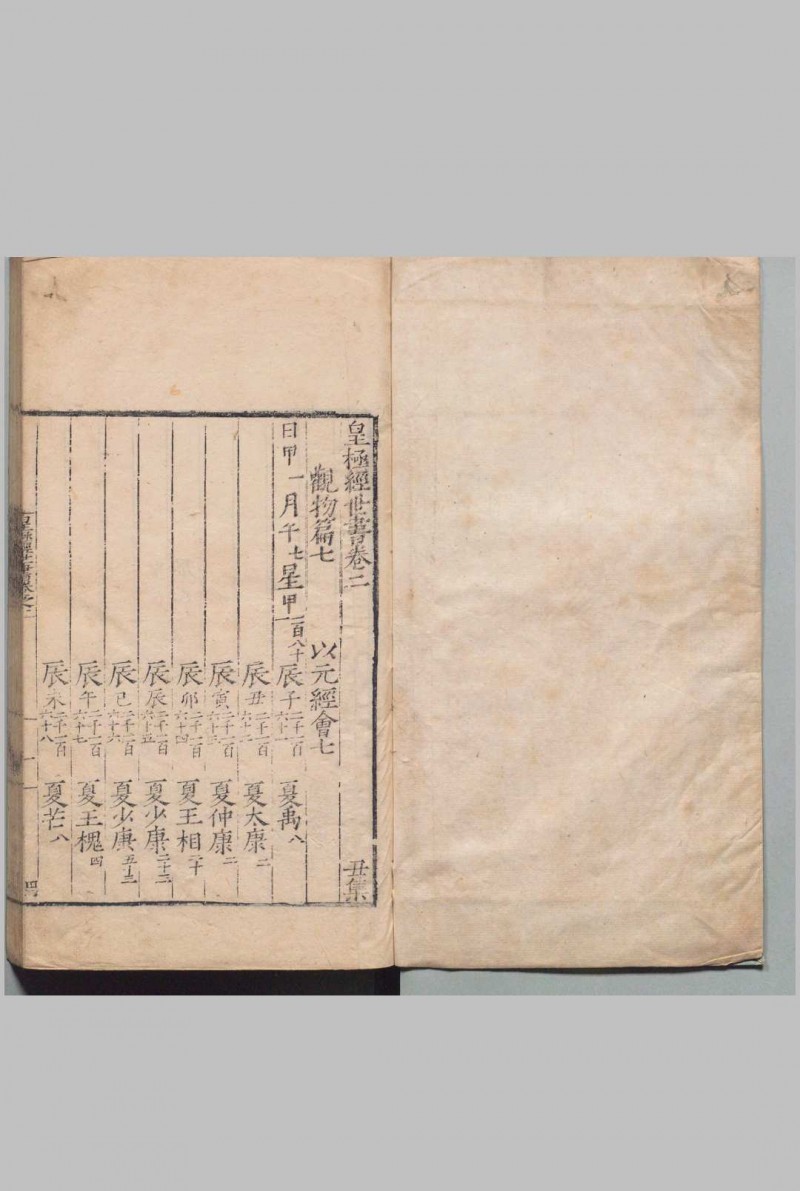 皇極經世書卷二 丑集
觀物篇七 以元經會七
日甲一月午七星甲一百八十一辰子二千一百六十一 夏禹八
辰丑二千一百六十二 夏太康二
辰寅二千一百六十三 夏仲康二
辰卯二千一百六十四 夏王相二十
辰辰二千一百六十五 夏少康二十二
辰巳二千一百六十六 夏少康五十三
辰午二千一百六十七 夏王槐四
辰未二千一百六十八 夏芒八
皇極經世書卷之二